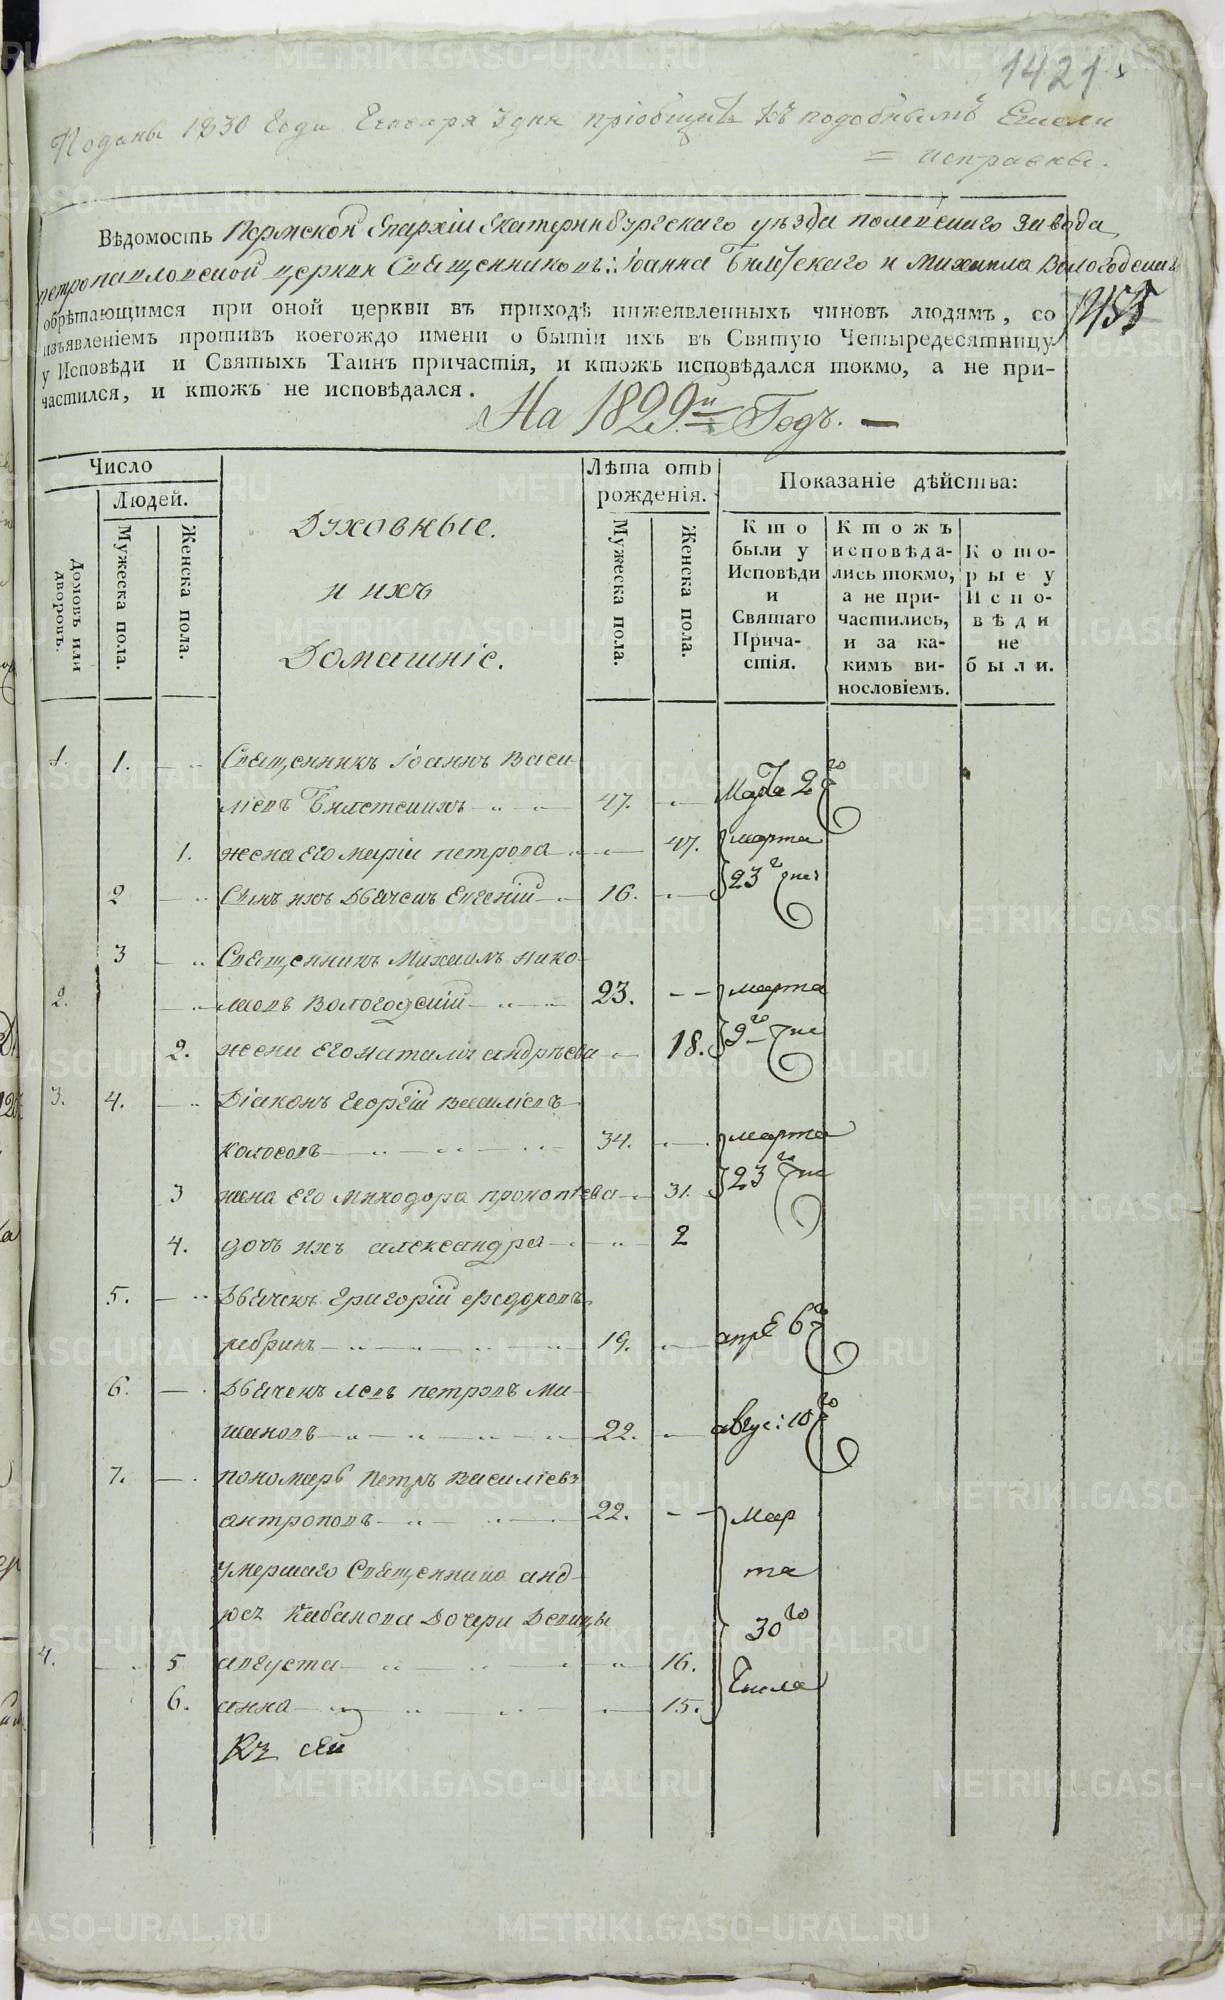 1421
Поданы 1830 Года Генваря 3 дня пріобщить къ подобнымъ Ежели
= исправны.
Вѣдомость Пермской Епархіи Екатеринбургскаго уѣзда полевскаго завода
петропавловской церкви Священниковъ: Іоанна и Михаила Вологодскаго
обрѣтающимся при оной церкви въ приходѣ нижеявленныхъ чиновъ людямъ, со
изъявленіемъ противъ коегождо имени о бытіи ихъ въ Святую Четыредесятницу
у Исповѣди и Святыхъ Таинъ причастія, и ктожъ исповѣдался токмо, а не при-
частился, и ктожъ не исповѣдался.
На 1829й Годъ.
Число
Людей.
Домовъ или дворовъ.
Мужеска пола.
Женска пола.
Духовные.
и ихъ
Домашніе.
Лѣта отъ
рожденія.
Мужеска пола.
Женска пола.
Показаніе дѣйства:
Кто
были у
Исповѣди
и
Святаго
Прича-
стія.
Ктожъ
исповѣда-
лись токмо,
а не при-
частились,
и за ка-
кимъ ви-
нословіемъ.
Кото-
рые у
Испо-
вѣди
не
были.
1. 1. Священникъ Іоаннъ Васи-
ліевъ 47. 2го
1. жена его марія петрова 47. марта
2 Сынъ ихъ Дьячекъ Евгеній 16. 23го дня
3 Священникъ Михаилъ Нико-
2. лаевъ Вологодскій 23. марта
2. жена его наталія андрѣева 18. 9го
3. 4. Діаконъ Георгій Василіевъ
колосовъ 34. марта
3 жена его прокопіева 31. 23го
4. дочь ихъ александра 2
5. Дьячекъ Григорій Ѳедоровъ
ребринъ 19. апрѣ 6го
6. Дьячекъ левъ петровъ ми-
22. авгус: 10го
7. пономарь Петръ Василіевъ
антроповъ 22. мар
умершаго Священника анд- та
рея Кабакова Дочери Девицы 30го
4. 5 августа 16. Числа
6. анна 15.
Къ сей